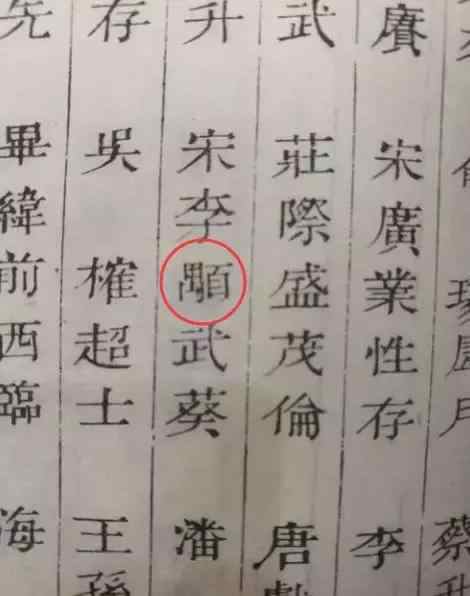 蔡升
賡 宋廣業性存 李
武 莊際盛茂倫 唐
升 宋李顒武葵 潘
存 吳 榷超士 王孫
先 畢緯前西臨 海